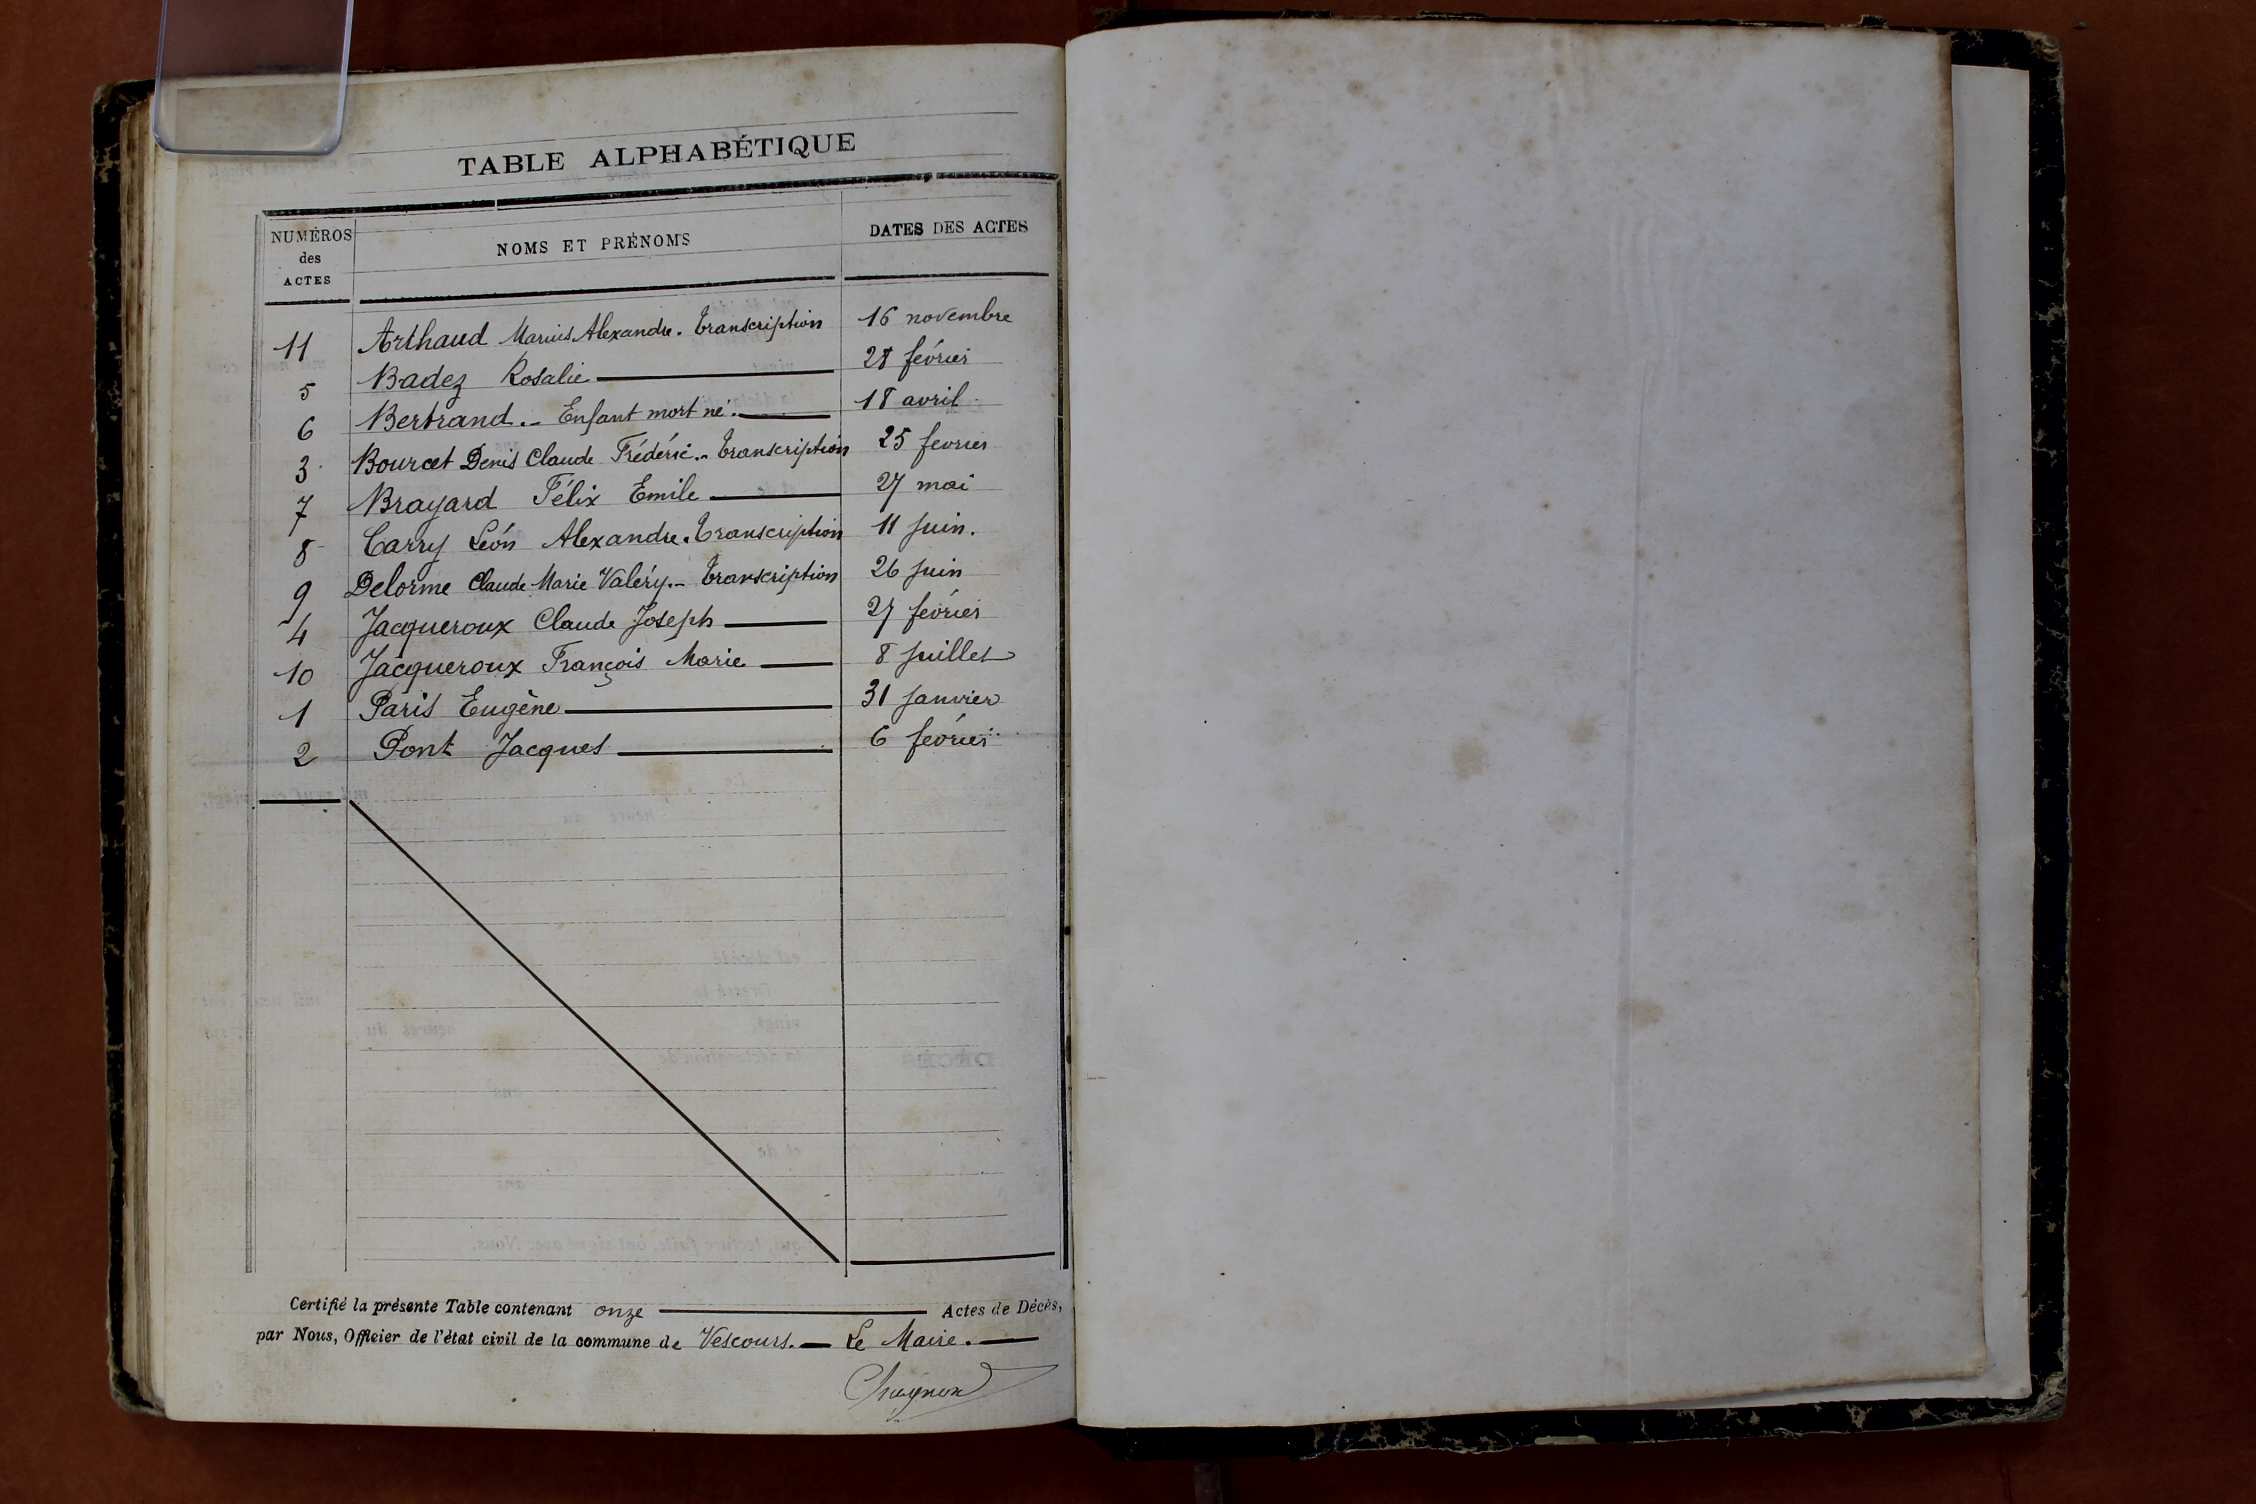 TABLE ALPHABÉTIQUE
NUMÉROS des ACTES NOMS ET PRÉNOMS DATES DES ACTES
11 Arthaud Marius Alexandre. Transcription 16 novembre
5 Badez Rosalie 28 février
6 Bertrand. - Enfant mort né. 18 avril
3 Bourcet Denis Claude Frédéric. - Transcription 25 fevrier
7 Brayard Félix Emile 27 mai
8 Carry Léon Alexandre. Transcription 11 juin.
9 Delorme Claude Marie Valéry. - Transcription 26 juin
4 Jacqueroux Claude Joseph 27 février
10 Jacqueroux François Marie 8 juillet
1 Paris Eugène 31 janvier
2 Pont Jacques 6 février
Certifié la présente Table contenant onze Actes de Décès,
par Nous, Officier de l'état civil de la commune de Vescours. - Le Maire.